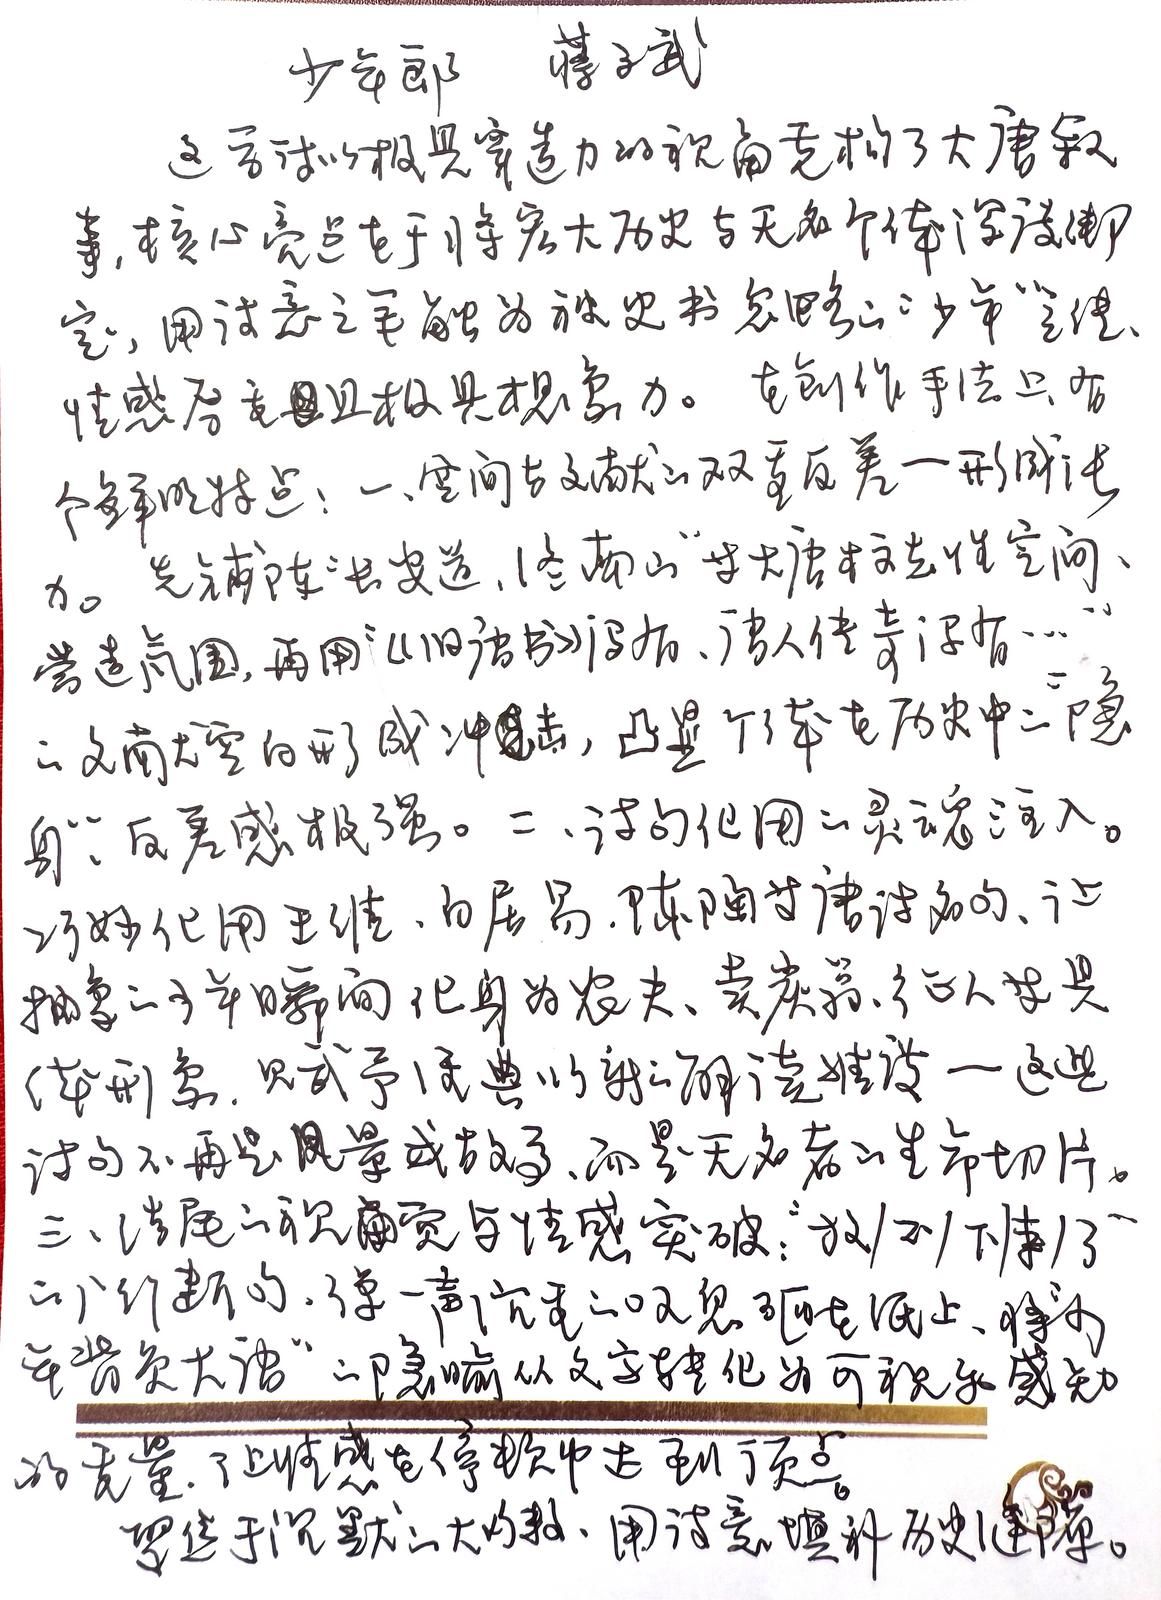 少年郎 蒋子武
这首诗以极具穿透力的视角重构了大唐叙
事,核心亮点在于将宏大历史与无名个体深度绑
定,用诗意之笔触为被史书忽略的“少年”立传、
情感厚重且极具想象力。在创作手法上有
个鲜明特点:一、空间与文献的双重反差—形成张
力。先铺陈“长安道、终南山”等大唐标志性空间、
营造氛围,再用“《旧唐书》没有、唐人传奇没有…”
的文献空白形成冲击,凸显个体在历史中的“隐
身”、反差感极强。二、诗句化用的灵魂注入。
巧妙化用王维、白居易、陈陶等唐诗名句、让
抽象的少年瞬间化身为农夫、卖炭翁、征人等具
体形象,又赋予经典以新的解读维度—这些
诗句不再是风景或故事、而是无名者的生命切片。
三、结尾的视角与情感突破:“放/不/下/来/了”
的分行断句、像一声沉重的叹息砸在纸上、将“少
年背负大唐”的隐喻从文字转化为可视可感知
的重量,让情感在停顿中达到顶点。
聚焦于沉默的大多数、用诗意填补历史缝隙。